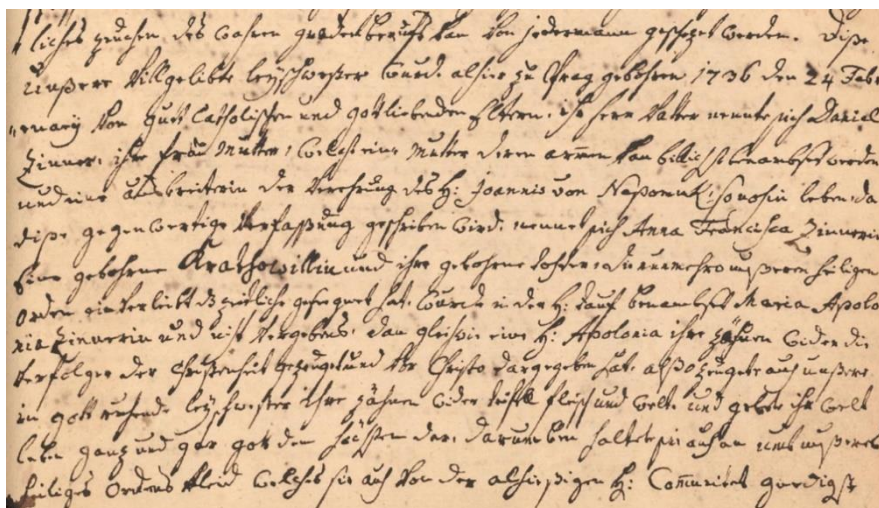 liches zeichen des wahren gnadenberufs kan von jedermann geschezet werden. Diße
Unßere Villgeliebte leyschwester wurde alhier zu Prag gebohren 1736 den 24 Feb
ruary Von gutt Catholischen und gottliebenden Eltern, ihr herr Vatter nennte sich Daniel
Zinner, ihre frau Mutter, welche eine Mutter deren armen kan billichst benambset werden
und eine ausbreiterin der Verehrung des H: Joannis von Nepomuk, so noch in leben, da
diße gegenwertige Verfassung geschriben wird, nennet sich Anna Francisca Zinnerin
Eine gebohrne Krathowillin und ihre gebohrne tochter, die nunmehro unßeren heiligen
Orden einverleibt zeitliche gesegnet hat, wurde in der H: tauf benambset Maria Apolo
nia Zinnerin und nit Vergebens, dan gleich wie eine H: Apolonia ihre zähnen wider die
Verfolger der Christenheit gezeuget und Christo dargegeben hat, alßo zeugete auch unßere
in gott ruhende leyschwester ihre zähnen wider teufel fleisch und welt, und gebete ihr welt
leben ganz und gar gott den dar, darumben haltete sie auch an umb unßeres
heiliges Ordens kleid welches sie auch von der alhießigen H: Communitet gnedigst